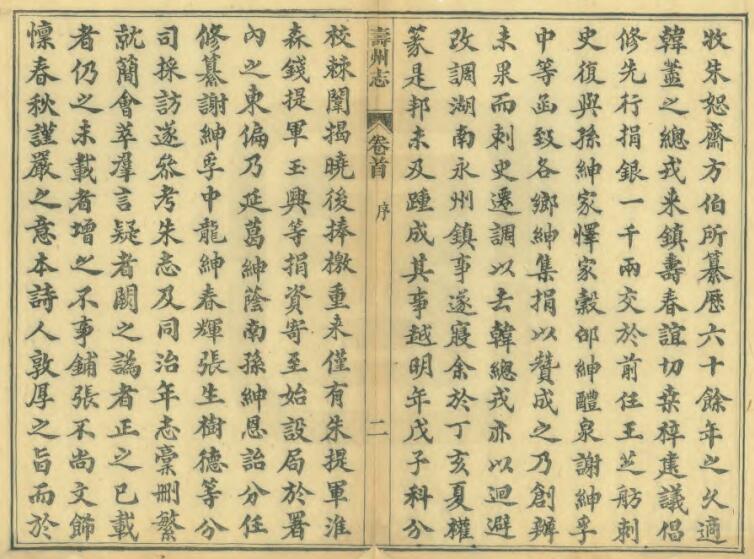 牧朱恕齋方伯所纂歷六十餘年之久適
韓藎之總戎來鎮壽春誼切桑梓建議倡
修先行捐銀一千兩交於前任王芝舫刺
史復與孫紳家懌家穀邰紳醴泉謝紳孚
中等函致各鄉紳集捐以贊成之乃創辦
未果而刺史遷調以去韓總戎亦以迴避
改調湖南永州鎮事遂寢余於丁亥夏權
篆是邦未及踵成其事越明年戊子科分
壽州志
卷首
序
二
校棘闈揭曉後捧檄重来僅有朱提軍淮
森錢提軍玉興等捐資寄至始設局於署
內之東偏乃延葛紳蔭南孫紳恩詒分任
修纂謝紳孚中龍紳春輝張生樹德等分
司採訪遂叅考朱志及同治年志稾刪繁
就簡會萃羣言疑者闕之譌者正之已載
者仍之未載者增之不事鋪張不尚文飾
懍春秋謹嚴之意本詩人敦厚之旨而於